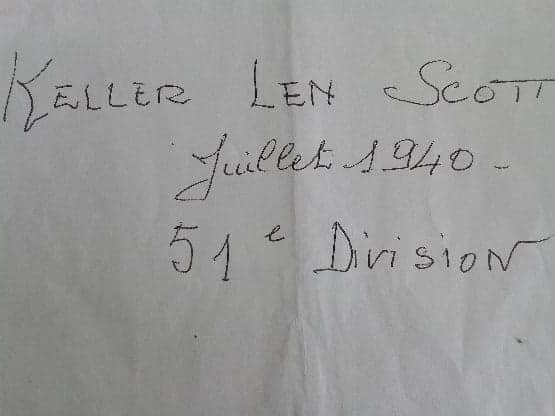 KELLER LEN SCOTT
Juillet 1940 -
51e DIVISION